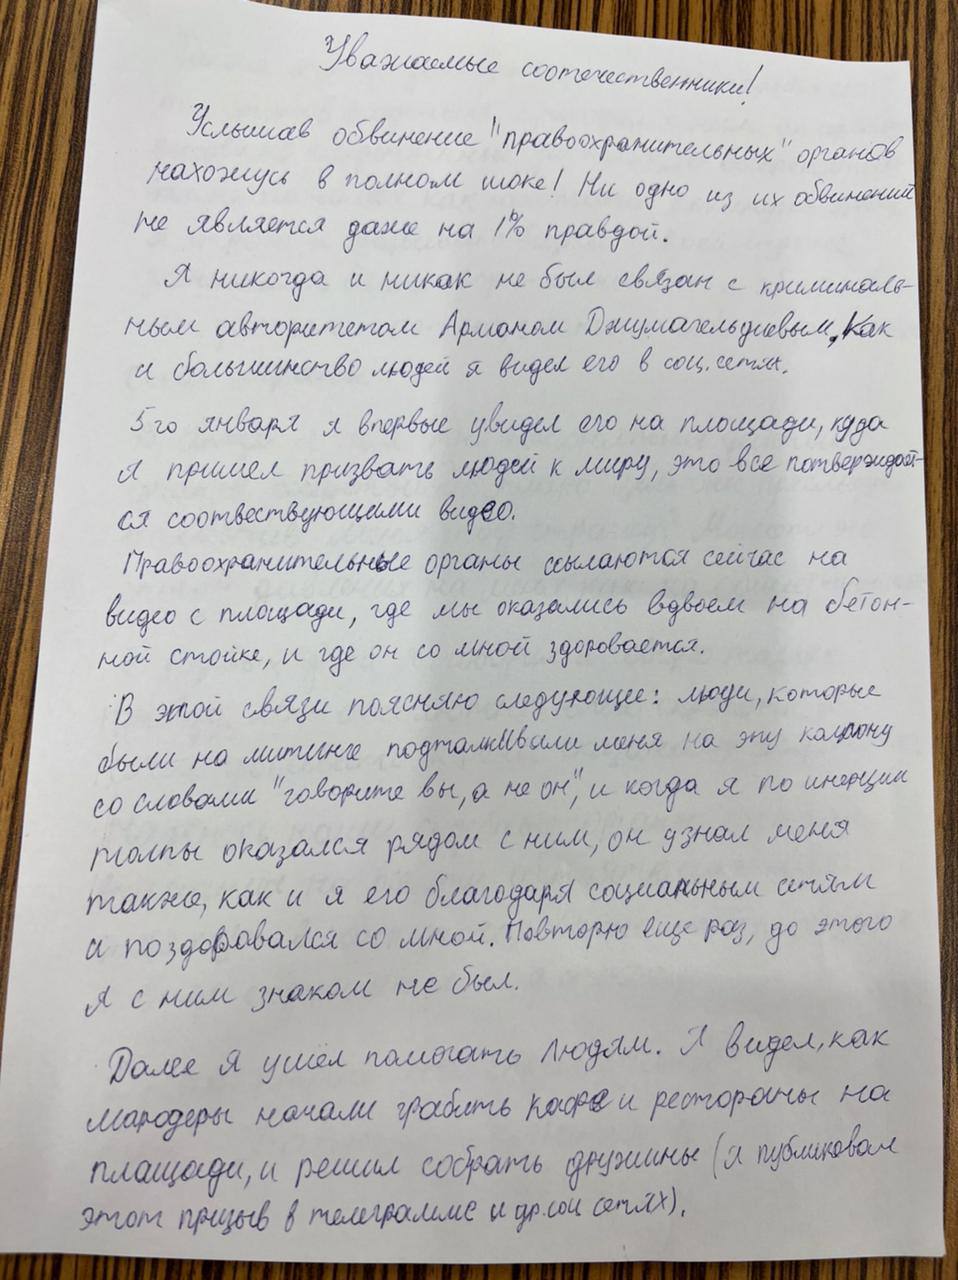 Уважаемые соотечественники!
Услышав обвинение "правоохранительных" органов
нахожусь в полном шоке! Ни одно из их обвинений
не является даже на 1% правдой.
Я никогда и никак не был связан с криминаль-
ным авторитетом Арманом Джумагельдиевым, как
и большинство людей я видел его в соц. сетях.
5го января я впервые увидел его на площади, куда
я пришел призвать людей к миру, это все потверждает-
ся соотвествующими видео.
Правоохранительные органы ссылаются сейчас на
видео с площади, где мы оказались вдвоем на бетон-
ной стойке, и где он со мной здоровается.
В этой связи поясняю следующее: люди, которые
были на митинге подталкивали меня на эту колонну
со словами "говорите вы, а не он", и когда я по инерции
толпы оказался рядом с ним, он узнал меня
также, как и я его благодаря социальным сетям
и поздоровался со мной. Повторю еще раз, до этого
я с ним знаком не был.
Далее я ушел помогать людям. Я видел, как
мародеры начали грабить кафе и рестораны на
площади, и решил собрать дружины (я публиковал
этот призыв в телеграмме и др. соц сетях).